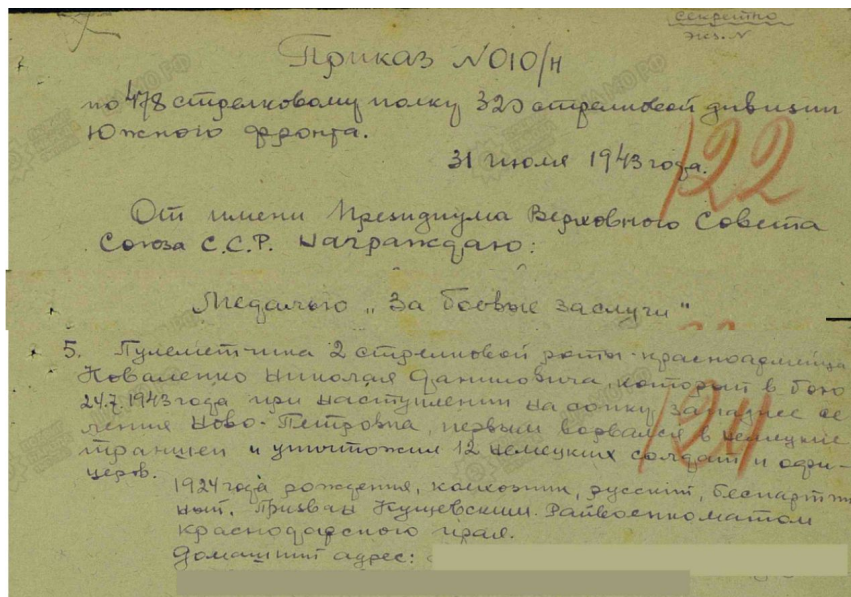 Секретно
Экз. N
Приказ №010/н
по 478 стрелковому полку 320 стрелковой дивизии
Южного фронта.
31 июля 1943 года.
122
От имени Президиума Верховного Совета
Союза С.С.Р. Награждаю:
Медалью „За боевые заслуги"
5. Пулеметчика 2 стрелковой роты-красноармейца
Коваленко Николая Даниловича, который в бою
24.7.1943 года при наступлении на сопку западнее се
ления Ново-Петровка, первым ворвался в немецкие
траншеи и уничтожил 12 немецких солдат и офи-
церов.
124
1924 года рождения, колхозник, русский, беспартий
ный. Призван Кущевским Райвоенкоматом
Краснодарского края.
Домашний адрес: